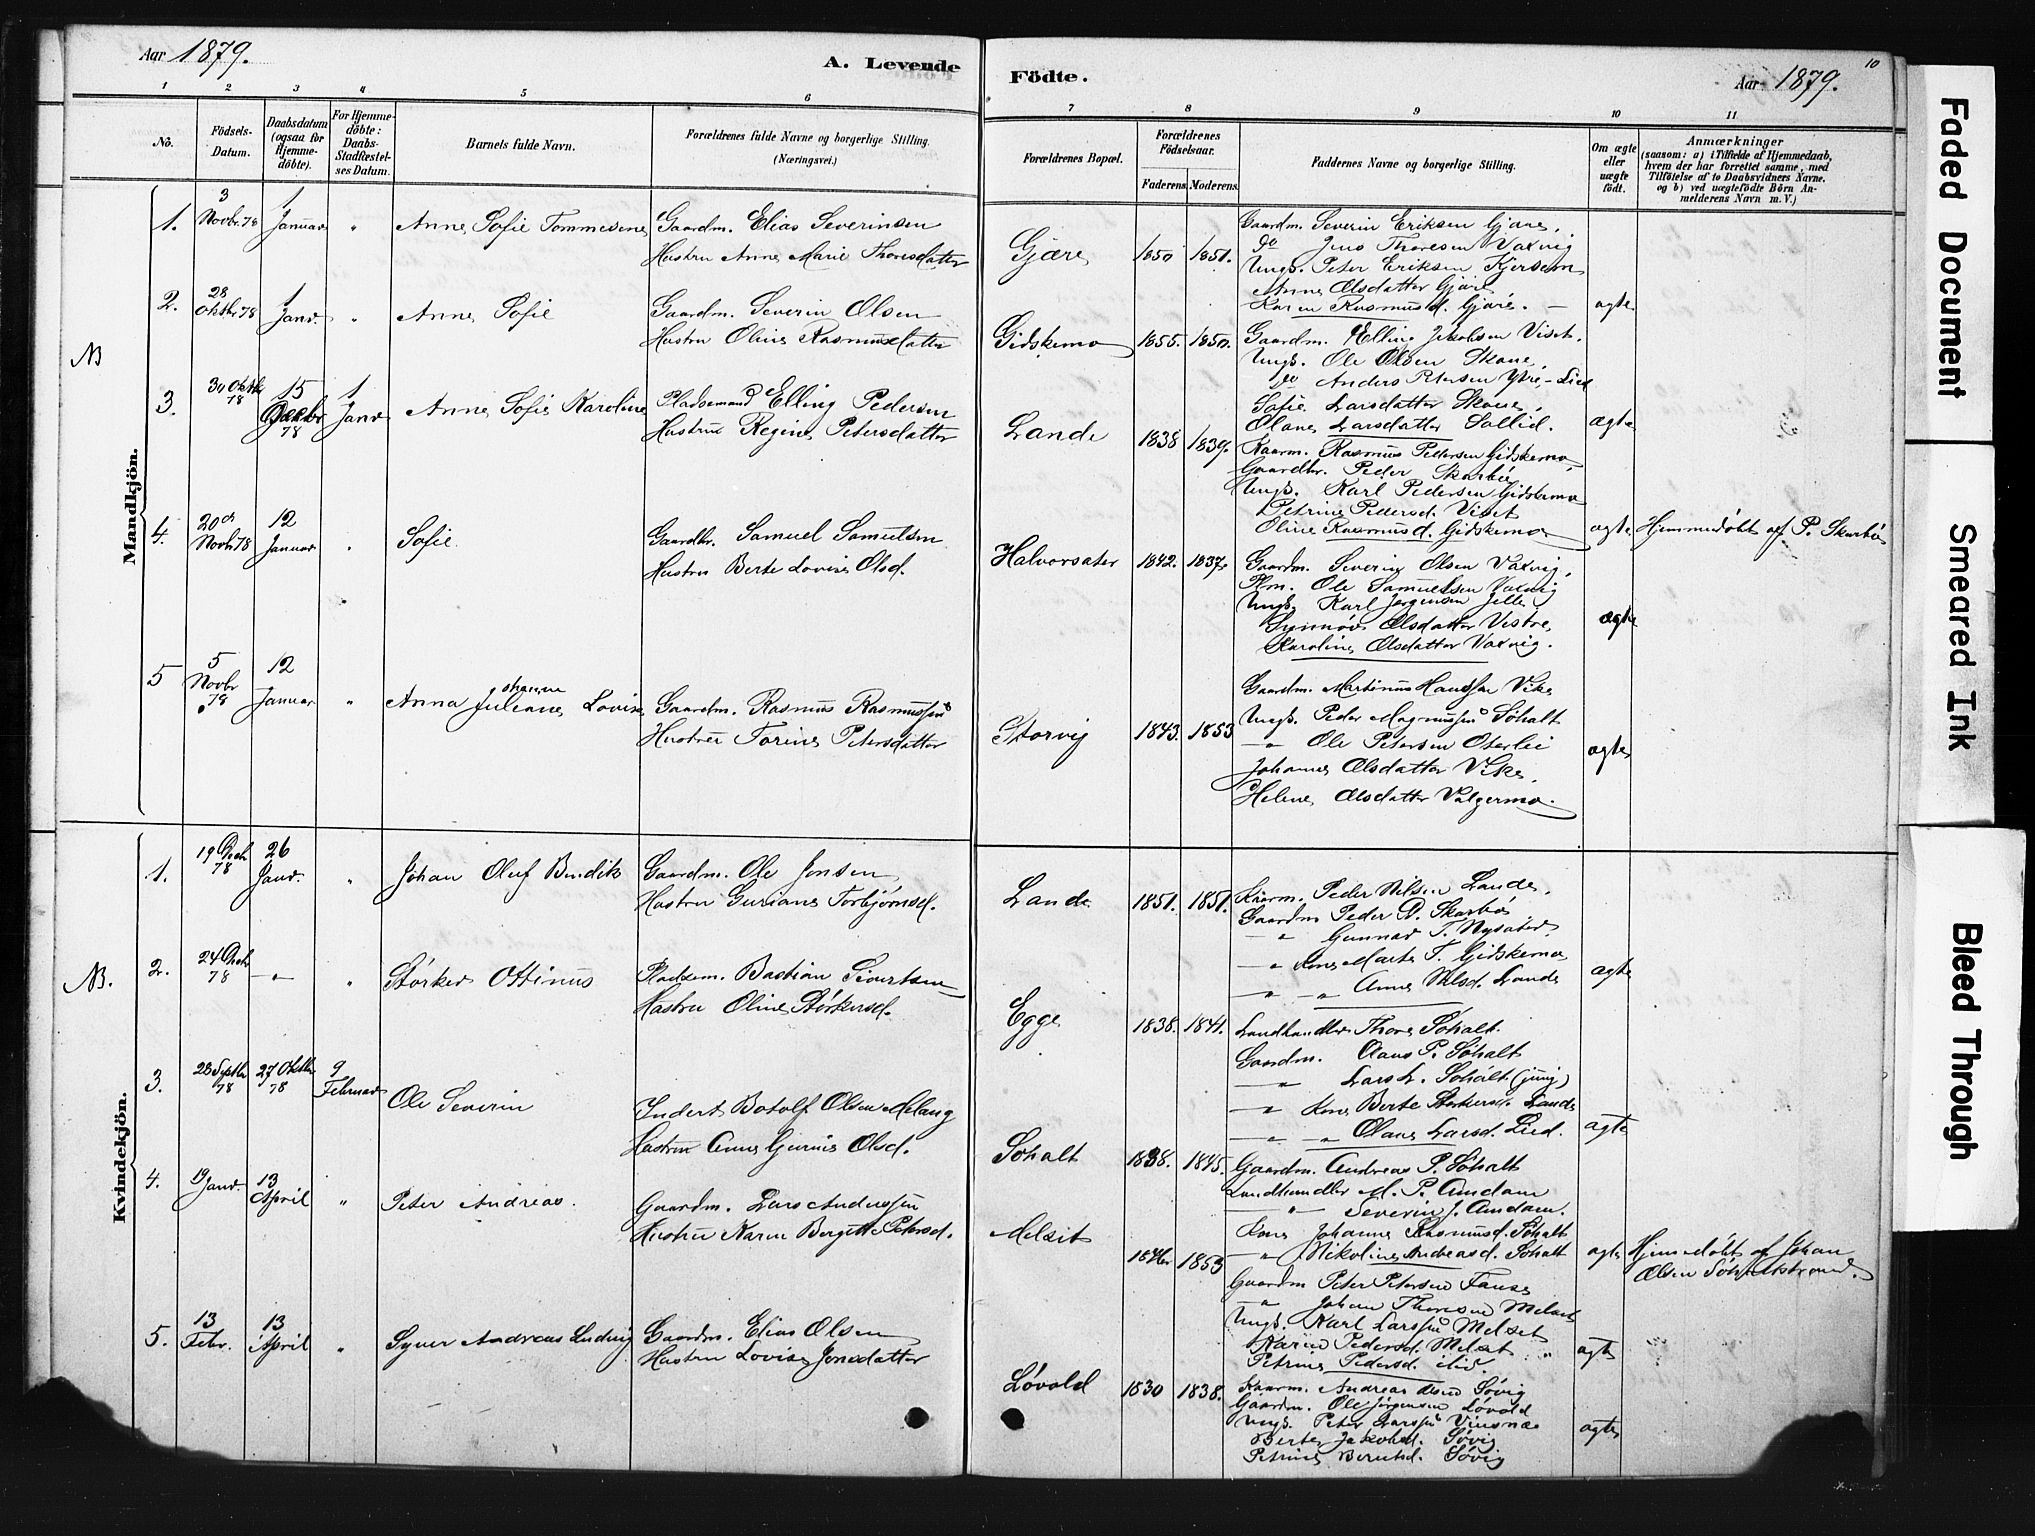 Aar 1879.
A. Levende
Födte.
Aar 1879.
10
1 2 3 4 5 6 7 8 9 10 11
No.
Födsels-
Datum.
Daabsdatum
(ogsaa for
Hjemme-
döbte).
For Hjemme-
döbte:
Daabs-
Stadfæstel-
ses Datum.
Barnets fulde Navn.
Forældrenes fulde Navne og borgerlige Stilling.
(Næringsvei.)
Forældrenes Bopæl.
Forældrenes
Födselsaar.
Faderens. Moderens.
Faddernes Navne og borgerlige Stilling.
Om ægte
eller
uægte
födt.
Anmærkninger
(saasom: a) i Tilfælde af Hjemmedaab,
hvem der har forrettet samme, med
Tilföielse af to Daabsvidners Navne.
og b) ved uægtefödte Börn An-
melderens Navn m. V.)
NB
Mandkjön.
1. 3 Novbr. 78 1 Januar " Anne Sofie Tommesine
Gaardm. Elias Severinsen
Hustru Anne Marie Thoresdatter
Gjære 1850 1851.
Gaardm. Severin Eriksen Gjære.
do Jens Thoresen Vaxvig
Ungk. Peter Eriksen Kjersem
Anne Olsdatter Gjære
Karen Rasmusd. Gjære. ægte
2. 28 Oktbr 78 1 Janr. " Anne Sofie
Gaardm. Severin Olsen
Hustru Oline Rasmusdatter
Gidskemo 1855. 1850.
Gaardm. Elling Jakobsen Viset.
Ungk. Ole Olsen Skane,
do Anders Petersen Ytre-Lied
Sofie Larsdatter Skane,
Olane Larsdatter Sollid. ægte
3. 30 Oktbr 78 15 Decbr 78 1 Janr Anne Sofie Karoline
Pladsemand Elling Pedersen
Hustru Regine Petersdatter
Lande 1838 1839.
Kaarm. Rasmus Pedersen Gidskemo
Gaardbr. Peder Skarbö
Ungk. Karl Pedersen Gidskemo
Petrine Pedersd. Viset
Oline Rasmusd. Gidskemo ægte Hjemmedöbt af P. Skarbö
4. 20de Novbr 78 12 Januar " Sofie.
Gaardbr. Samuel Samuelsen
Hustru Berte Lovise Olsd.
Halvorsæter 1842. 1837.
Gaardm. Severin Olsen Vaxvig,
Plm. Ole Samuelsen Vaxvig
Ungk. Karl Jørgensen Jelle
Synnøve Olsdatter Vestre,
Karoline Olsdatter Vaxvig. ægte
5 5 Novbr 78 12 Januar " Anna Juliane Lovise
Johanne
Gaardm. Rasmus Rasmussen
Hustru Torine Petersdatter
Storvig 1843. 1853
Gaardm. Martinus Hanssen Vike
Ungk. Peder Magnussen Søholt
" Ole Petersen Oterlei
Johanne Olsdatter Vike,
Helene Olsdatter Valgermo. ægte
NB.
Kvindekjön.
1. 19 Decb 78 26 Janr. " Johan Oluf Bendik
Gaardm. Ole Jonsen
Hustru Guriane Torbjörnsd.
Lande 1851. 1851.
Kaarm. Peder Nilsen Lande.
Gaardm Peder D. Skarbö
" Gunnar T. Nysæter.
" Kone Marte T. Gidskemo
" " Anne Nilsd. Lande ægte
2. 24 Decbr 78 " " Størker Ottinus
Pladsem. Bastian Sivertsen
Hustru Oline Størkersd.
Egge 1838. 1841.
Landhandler Thore Søholt.
Gaardm. Claus P. Søholt
" Lars L. Søholt (jung)
" Kone Berte Størkersd. Lande
" " Olane Larsd. Lied. ægte
3. 28 Septbr 78 27 Oktbr 78 9 Februar Ole Severin
Inderst Botolf Olsen Melang
Hustru Anne Gurine Olsd.
Søholt 1838. 1845.
Gaardm. Andreas P. Søholt
Landhandler M. P. Amdam
" Severin J. Amdam.
Kone Johanne Rasmusd. Søholt
" Nikoline Andreasd. Søholt ægte Hjemmedöbt af Johan
Olsen Søholtstrand.
4. 19 Janr. 13 April " Peter Andreas.
Gaardm. Lars Anderssen
Hustru Karen Bergitte Petersd.
Melset 1846 1853
Gaardm Peter Petersen Fauske
" Johan Thoresen Melset
Ungk. Karl Larssen Melset
Karen Pedersd. Melset "
Petrine Pedersd. ibid. ægte
5. 13 Febr. 13 April " Syver Andreas Ludvig
Gaardm. Elias Olsen
Hustru Lovise Jonsdatter
Løvold 1830 1838.
Kaarm. Andreas Olsen Søvig
Gaardm. Ole Jørgensen Løvold
Ungk. Peter Larssen Vinsnæs
Berte Jakobsd. Søvig
Petrine Berntsd. Søvig ægte
Faded Document
Smeared Ink
Bleed Through